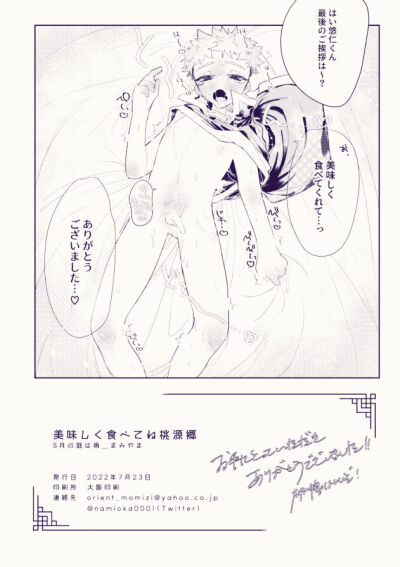 はい悠仁くん
最後のご挨拶は〜？
美味しく
食べてくれて…っ
ありがとう
ございました…♡
美味しく食べてね桃源郷
5月の庭は雨＿まみやま
発行日 2022年7月23日
印刷所 大阪印刷
連絡先 orient_momizi@yahoo.co.jp
@namioka0001(Twitter)
ありがとうございました!!